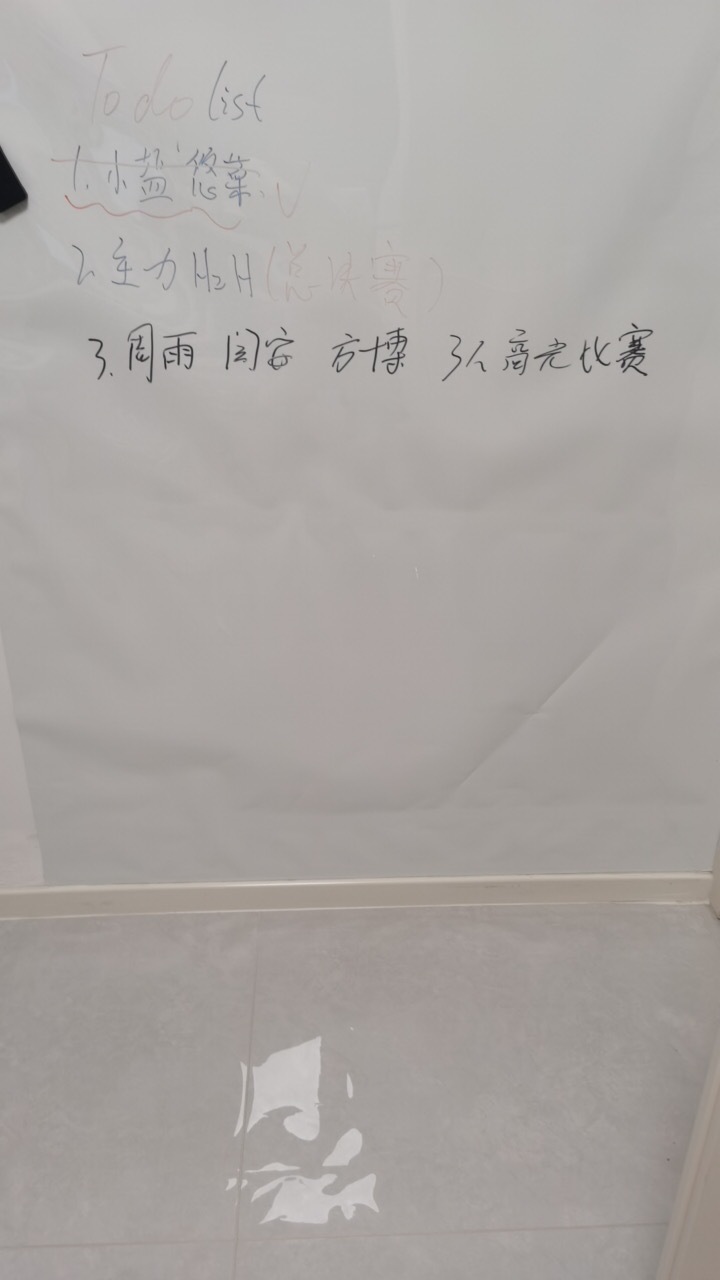 To do list
1. 小盐 悠菜
2. 主力 H2H (总决赛)
3. 周雨 闫安 方博 3人高光比赛